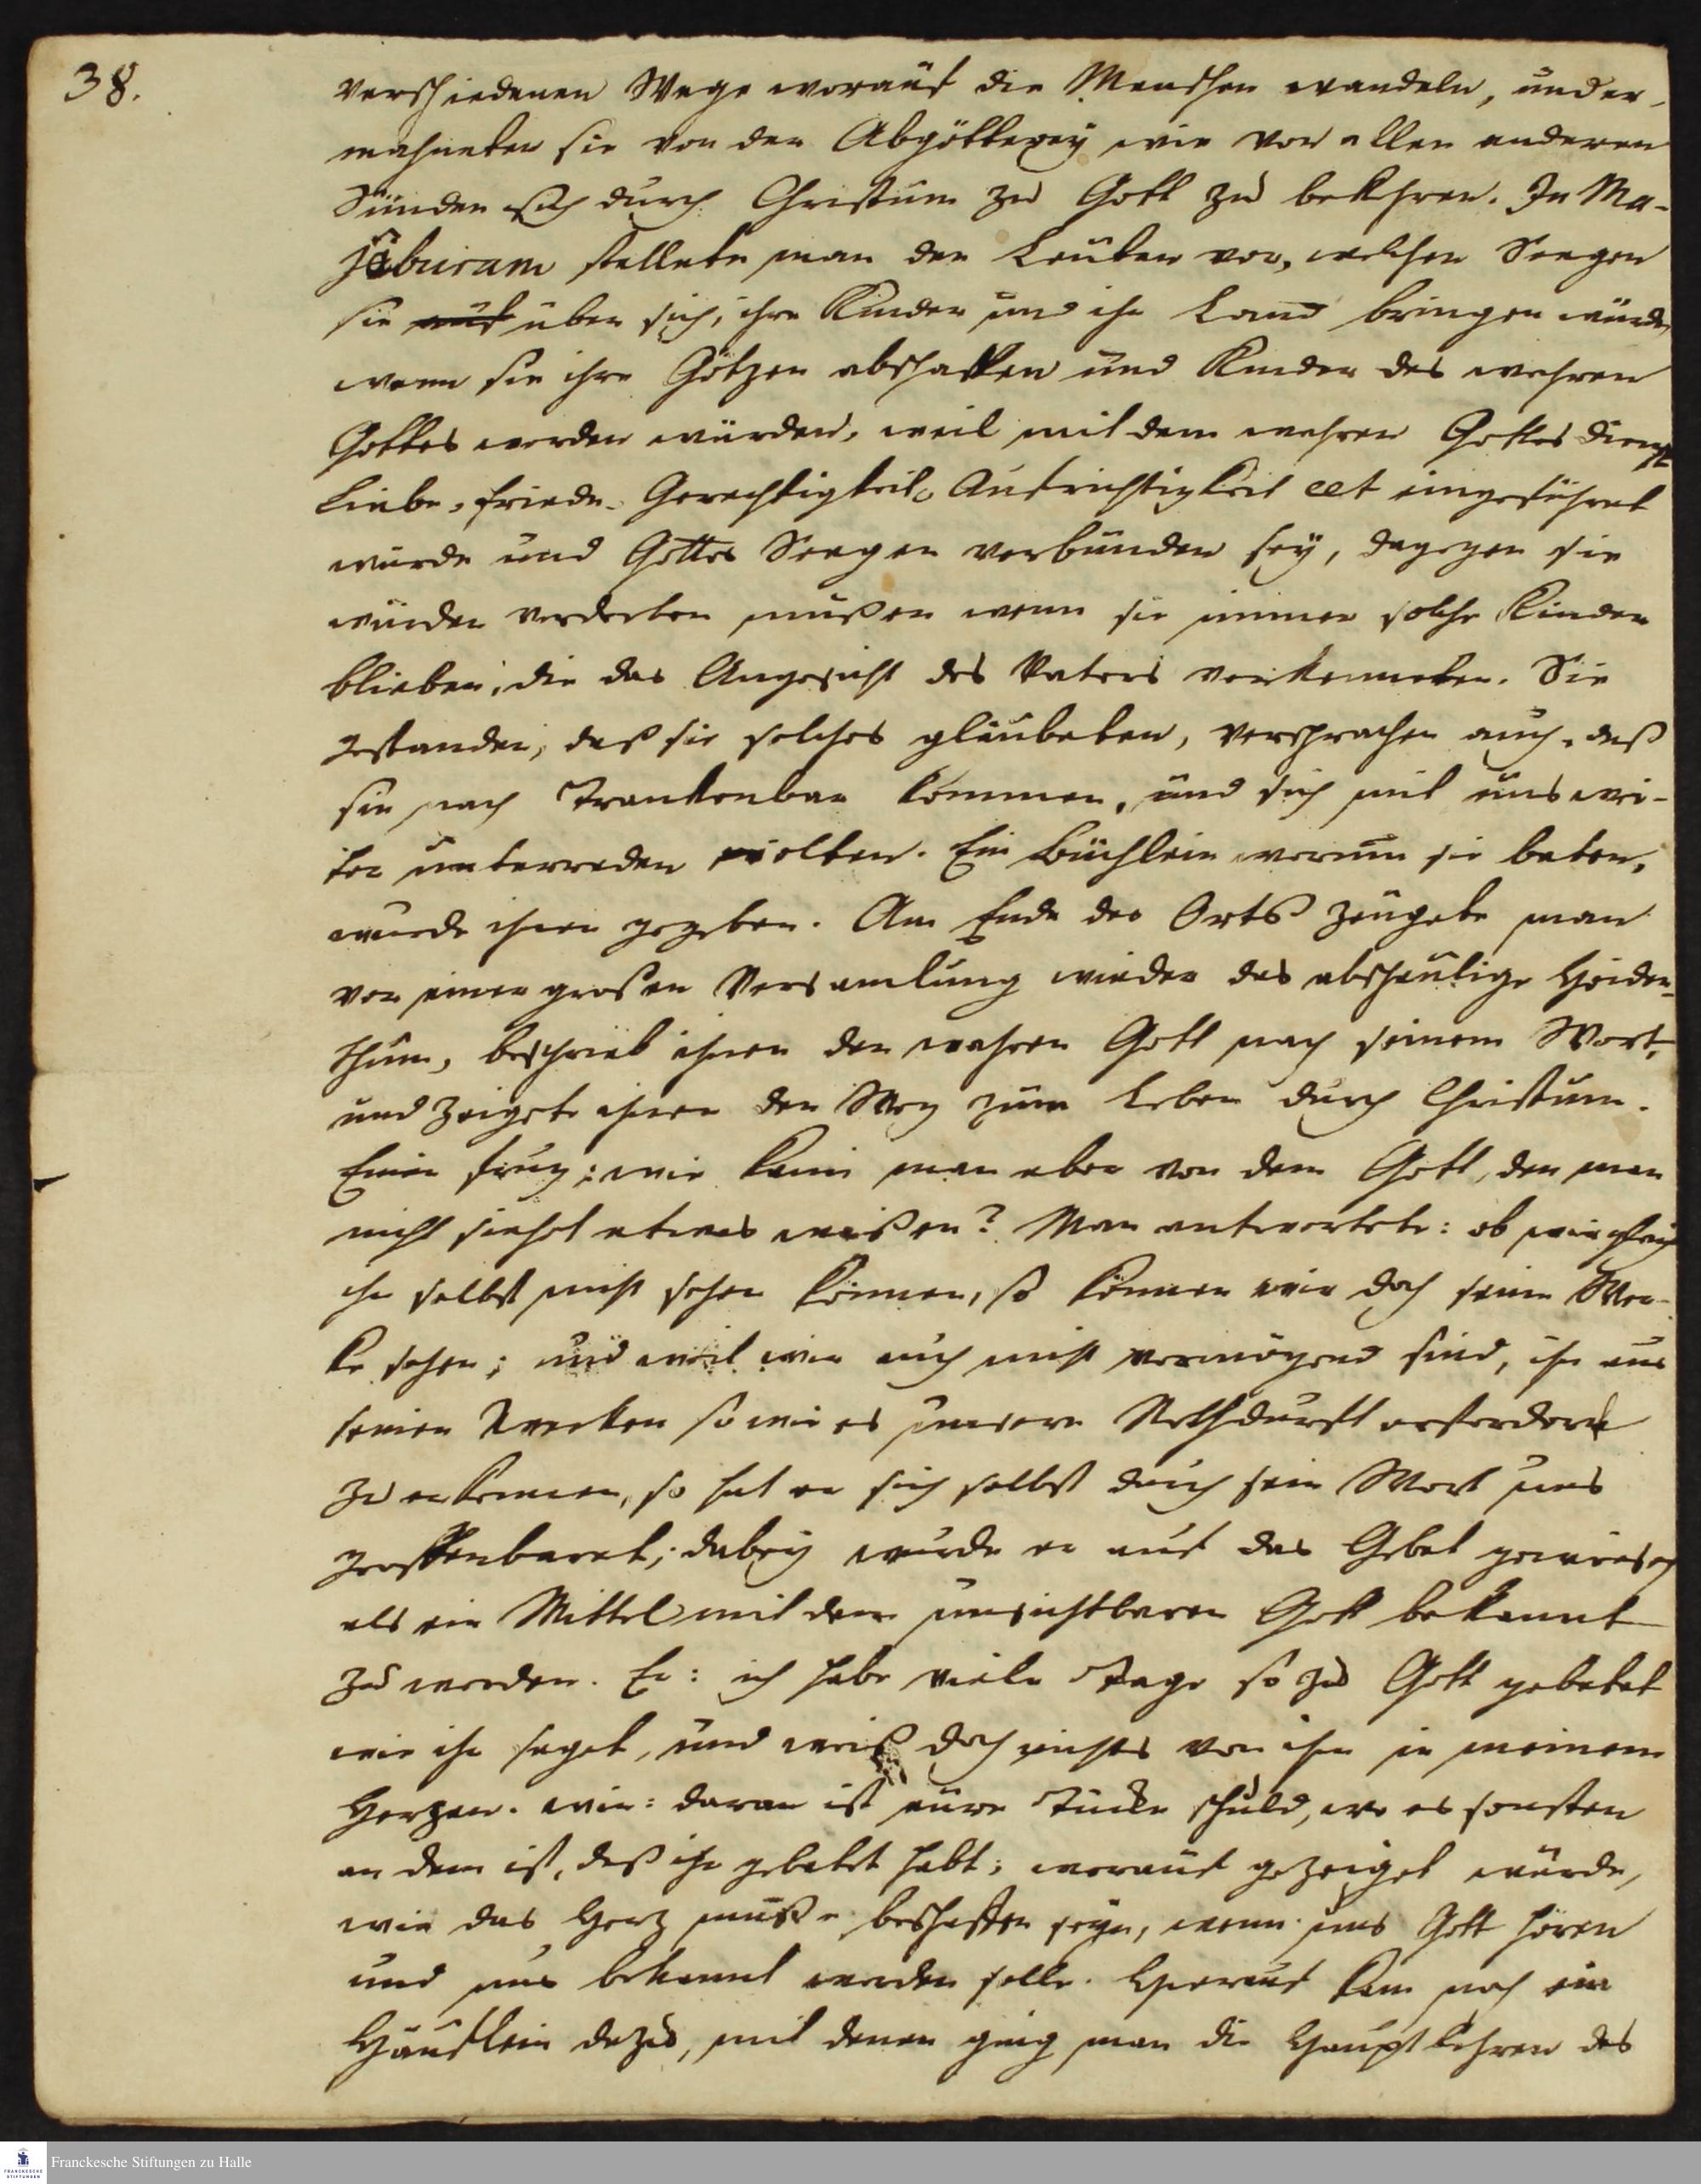 38.
verschiedenen Wege worauf die Menschen wandeln, und er-
mahneten sie von der Abgötterey wie von allen anderen
Sünden sich durch Christum zu Gott zu bekehren. In Ma-
jaburam stellete man den Leuten vor, welchen Seegen
sie auf über sich, ihre Kinder und ihr Land bringen würden
wenn sie ihre Götzen abschaffen und Kinder des wahren
Gottes werden würden, weil mit dem wahren Gottes dienst
Liebe, Friede, Gerechtigkeit, Aufrichtigkeit cet eingeführet
würde und Gottes Seegen verbunden sey, dagegen sie
würden verderben müßen wenn sie immer solche Kinder
blieben, die das Angesicht des Vaters verkenneten. Sie
gestanden, daß sie solches glaubeten, versprachen auch, daß
sie nach Trankenbar kommen, und sich mit uns wei-
ter unterreden wolten. Ein Büchlein worum sie baten,
wurde ihnen gegeben. Am Ende des Orts zeugete man
vor einer großen Versamlung wieder das abscheulige Heiden-
thum, beschrieb ihnen den wahren Gott nach seinem Wort,
und zeigete ihnen den Weg zum Leben durch Christum.
Einer frug: wie kann man aber von dem Gott, den man
nicht siehet etwas wißen? Man antwortete: ob wir gleich
ihn selbst nicht sehen können, so können wir doch seine Wer-
ke sehen; und weil wir auch nicht vermögend sind, ihn aus
seinen Wercken so wie es unsere Nothdurft erfordert
zu erkennen, so hat er sich selbst durch sein Wort uns
geoffenbaret; dabey wurde er auf das Gebet gewiesen
als ein Mittel mit dem unsichtbaren Gott bekannt
zu werden. Er: ich habe viele Tage so zu Gott gebetet
wie ihr saget, und weiß doch nichts von ihm in meinem
Herzen. wir: daran ist eure Tücke schuld, wo es sonsten
an dem ist, daß ihr gebetet habt; worauf gezeiget würde,
wie das Herz müße beschaffen seyn, wenn uns Gott hören
und uns bekannt werden solle. Hierauf kam noch ein
Häuflein dazu, mit denen ging man die Hauptlehren des
Franckesche Stiftungen zu Halle